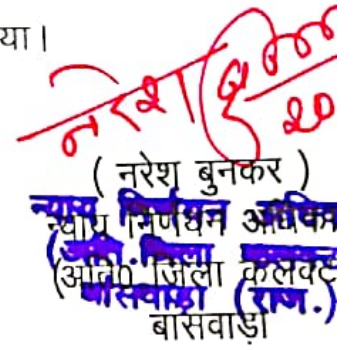 या।
नरेश
20
( नरेश बुनकर )
न्याय निर्णयन
(अति० जिला कलक्ट
बांसवाड़ा (राज.)
बांसवाड़ा